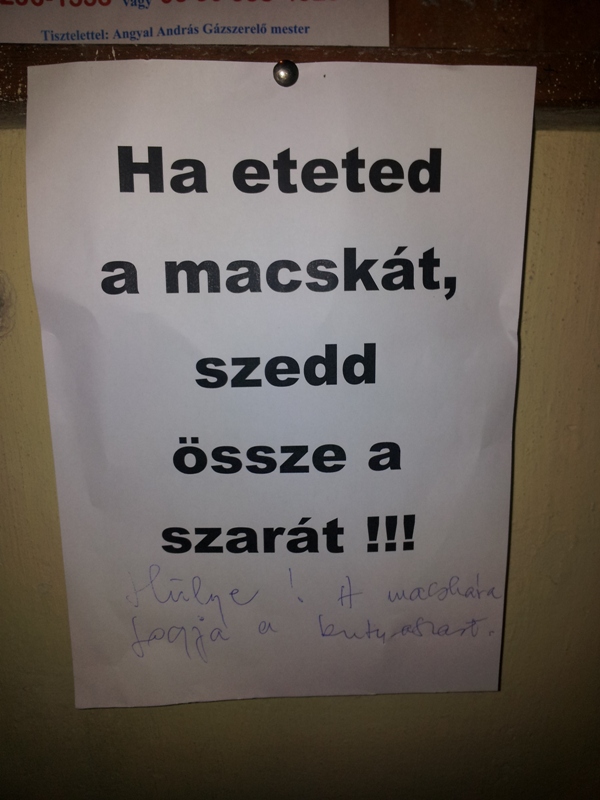 vagy
Tisztelettel: Angyal András Gázszerelő mester
Ha eteted
a macskát,
szedd
össze a
szarát !!!
Hülye ! A macskára
fogja a kutyaszart.